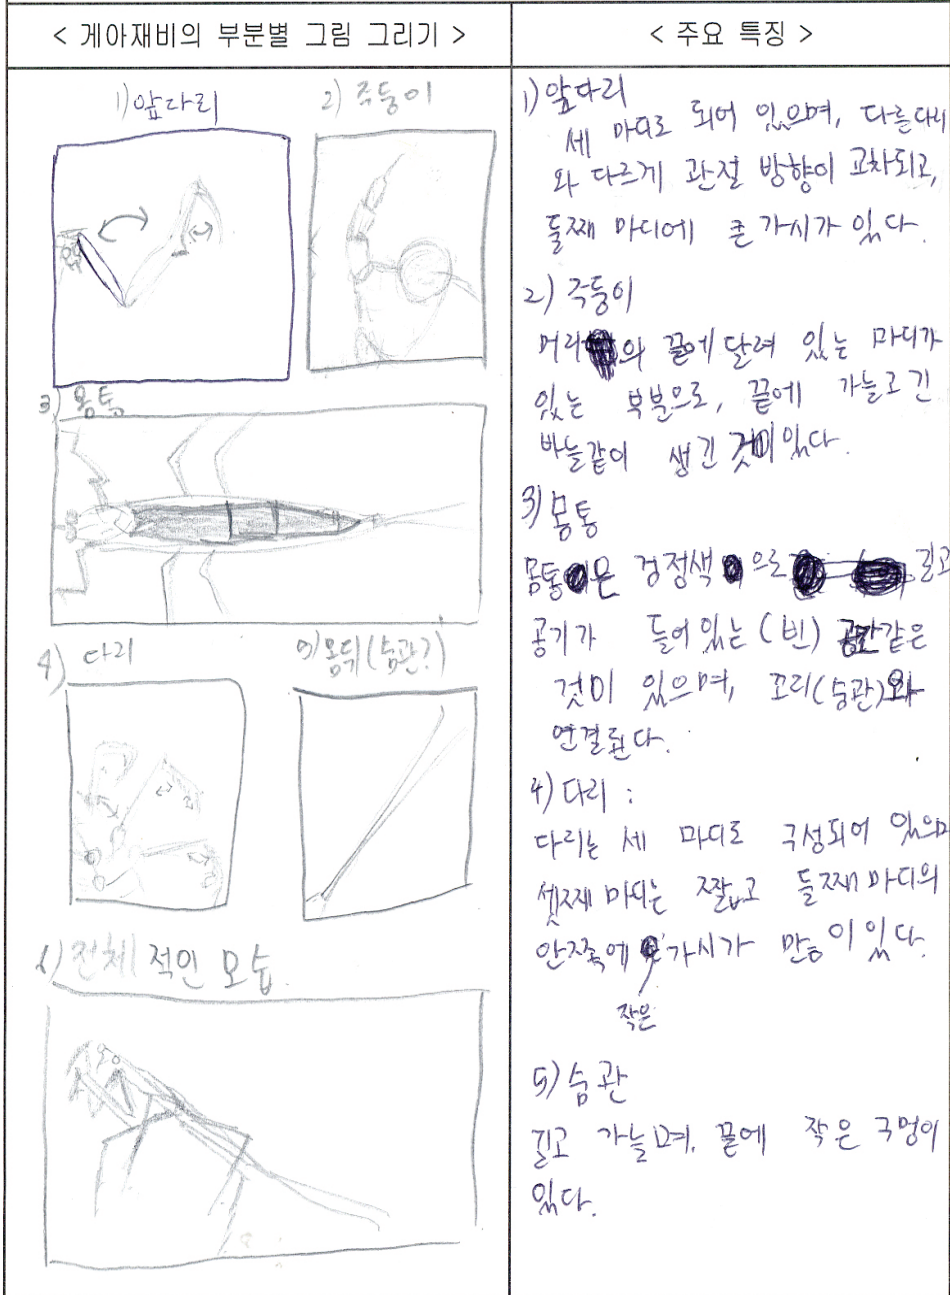 < 게아재비의 부분별 그림 그리기 >
1) 앞다리
2) 주둥이
3) 몸통
4) 다리
5) 몸뒤(숨관?)
전체적인 모습
< 주요 특징 >
1) 앞다리
세 마디로 되어 있으며, 다른다리
와 다르게 관절 방향이 교차되고,
둘째 마디에 큰 가시가 있다.
2) 주둥이
머리의 끝에 달려 있는 마디가
있는 부분으로, 끝에 가늘고 긴
바늘같이 생긴 것이 있다.
3) 몽통
몽통은 검정색으로 길고
공기가 들어있는 (빈) 공간같은
것이 있으며, 꼬리(숨관)와
연결된다.
4) 다리 :
다리는 세 마디로 구성되어 있으며
셋째 마디는 짧고 둘째 마디의
안쪽에 가시가 많이 있다.
작은
5) 숨관
길고 가늘며, 끝에 작은 구멍이
있다.